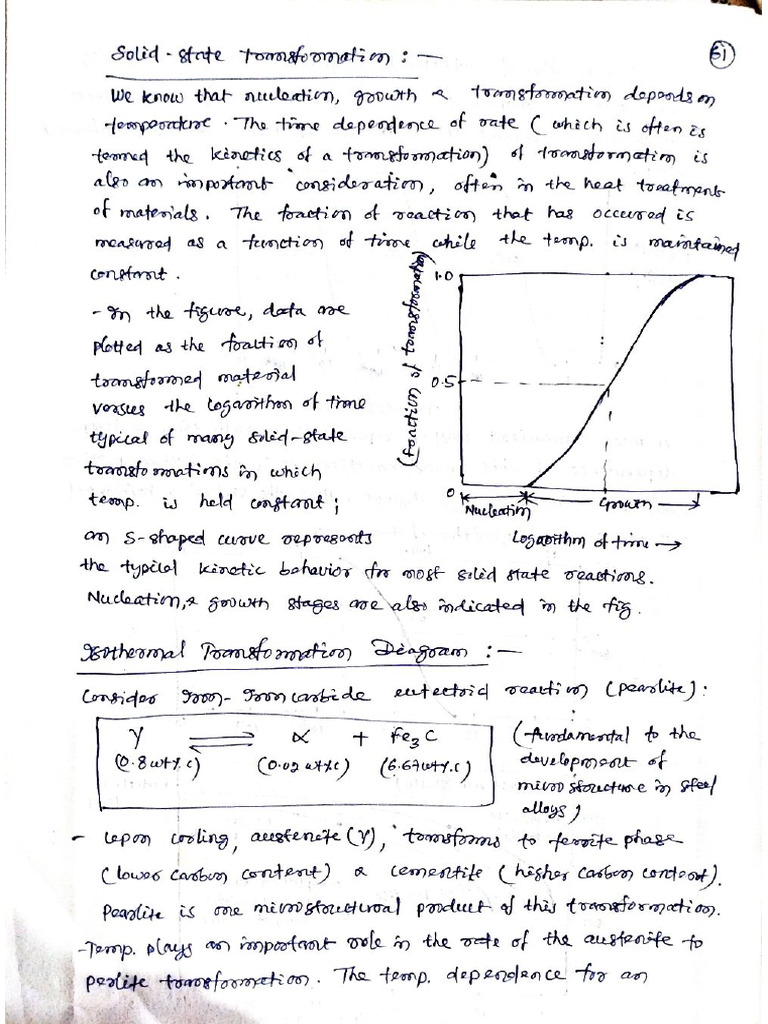 Solid-state transformation :-
51
We know that nucleation, growth & transformation depends on
temperature. The time dependence of rate (which is often is
termed the kinetics of a transformation) of transformation is
also an important consideration, often in the heat treatment
of materials. The fraction of reaction that has occured is
measured as a function of time while the temp. is maintained
constant.
- In the figure, data are
plotted as the fraction of
transformed material
versus the logarithm of time
typical of many solid-state
transformations in which
temp. is held constant;
an S-shaped curve represents
the typical kinetic behavior for most solid state reactions.
Nucleation, & growth stages are also indicated in the fig.
(fraction of transformation)
1.0
0.5
0
Nucleation
Growth
Logarithm of time →
Isothermal Transformation Diagram :-
Consider Iron-Iron carbide eutectoid reaction (pearlite) :
γ ⇌ α + Fe3C
(0.8 wt% C) (0.02 wt% C) (6.67 wt% C)
(fundamental to the
development of
microstructure in steel
alloys)
- Upon cooling, austenite (γ), transforms to ferrite phase
(lower carbon content) & cementite (higher carbon content).
Pearlite is one microstructural product of this transformation.
- Temp. plays an important role in the rate of the austenite to
perlite transformation. The temp. dependence for an